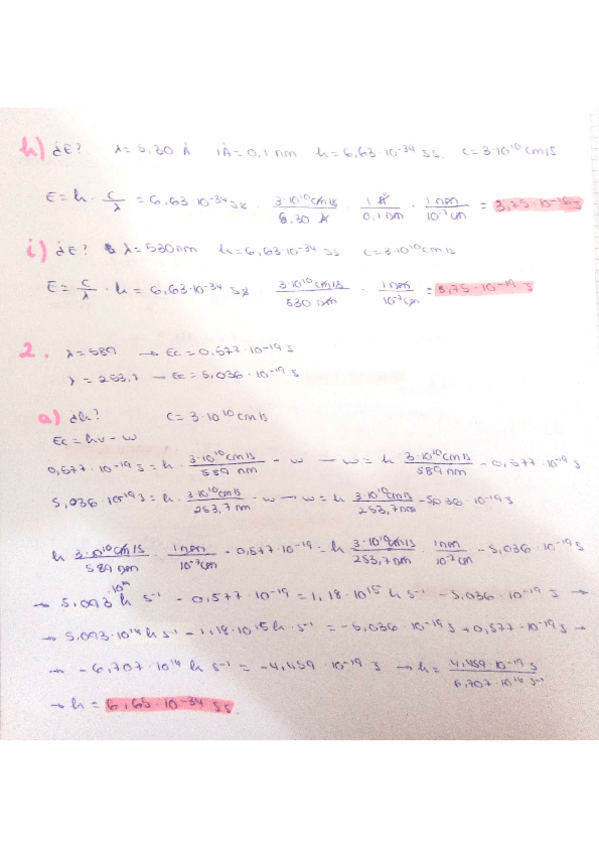 h) ¿E? λ = 5,30 Å 1Å = 0,1 nm h = 6,63·10⁻³⁴ J·s. c = 3·10¹⁰ cm/s
E = h · c/λ = 6,63·10⁻³⁴ J·s · 3·10¹⁰ cm/s / 5,30 Å · 1 Å / 0,1 nm · 1 nm / 10⁻⁷ cm = 3,75·10⁻¹⁶ J
i) ¿E? λ = 530 nm h = 6,63·10⁻³⁴ J·s c = 3·10¹⁰ cm/s
E = c/λ · h = 6,63·10⁻³⁴ J·s · 3·10¹⁰ cm/s / 530 nm · 1 nm / 10⁻⁷ cm = 3,75·10⁻¹⁹ J
2. λ = 589 → Ec = 0,577·10⁻¹⁹ J
λ = 253,7 → Ec = 5,036·10⁻¹⁹ J
a) ¿h? c = 3·10¹⁰ cm/s
Ec = hν - w
0,577·10⁻¹⁹ J = h · 3·10¹⁰ cm/s / 589 nm - w → w = h 3·10¹⁰ cm/s / 589 nm - 0,577·10⁻¹⁹ J
5,036·10⁻¹⁹ J = h · 3·10¹⁰ cm/s / 253,7 nm - w → w = h 3·10¹⁰ cm/s / 253,7 nm - 5,036·10⁻¹⁹ J
h 3·10¹⁰ cm/s / 589 nm · 1 nm / 10⁻⁷ cm - 0,577·10⁻¹⁹ = h 3·10¹⁰ cm/s / 253,7 nm · 1 nm / 10⁻⁷ cm - 5,036·10⁻¹⁹ J
→ 5,093·10¹⁴ h s⁻¹ - 0,577·10⁻¹⁹ = 1,18·10¹⁵ h s⁻¹ - 5,036·10⁻¹⁹ J →
→ 5,093·10¹⁴ h s⁻¹ - 1,18·10¹⁵ h·s⁻¹ = -5,036·10⁻¹⁹ J + 0,577·10⁻¹⁹ J →
→ -6,707·10¹⁴ h s⁻¹ = -4,459·10⁻¹⁹ J → h = 4,459·10⁻¹⁹ J / 6,707·10¹⁴ s⁻¹
→ h = 6,65·10⁻³⁴ J·s.